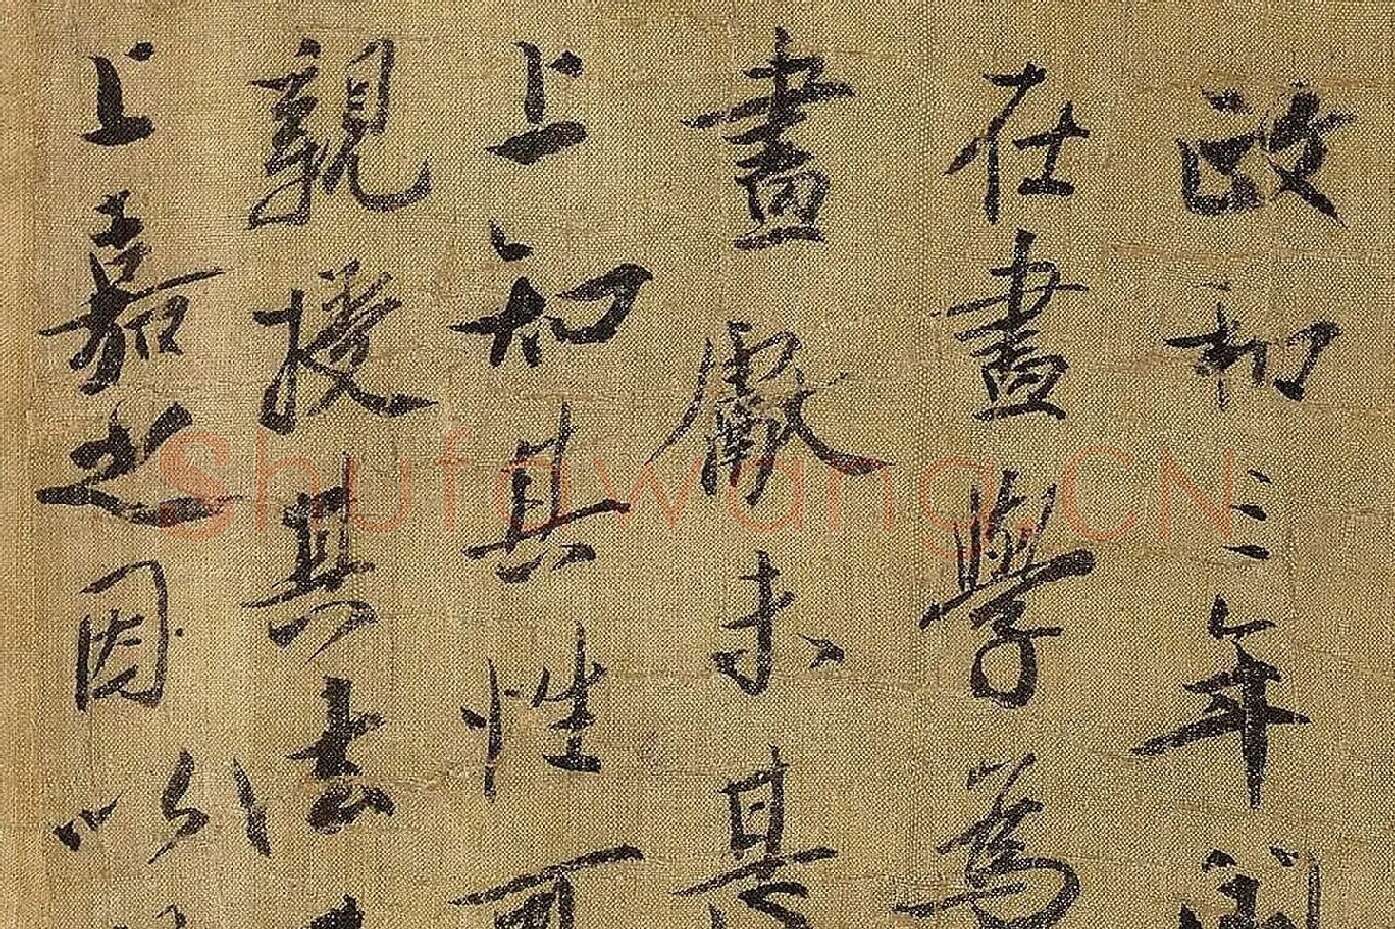 政和三年閏
在畫學為
畫獻未甚
上知其性可
親授其法
上嘉之因以
Shufawang.CN